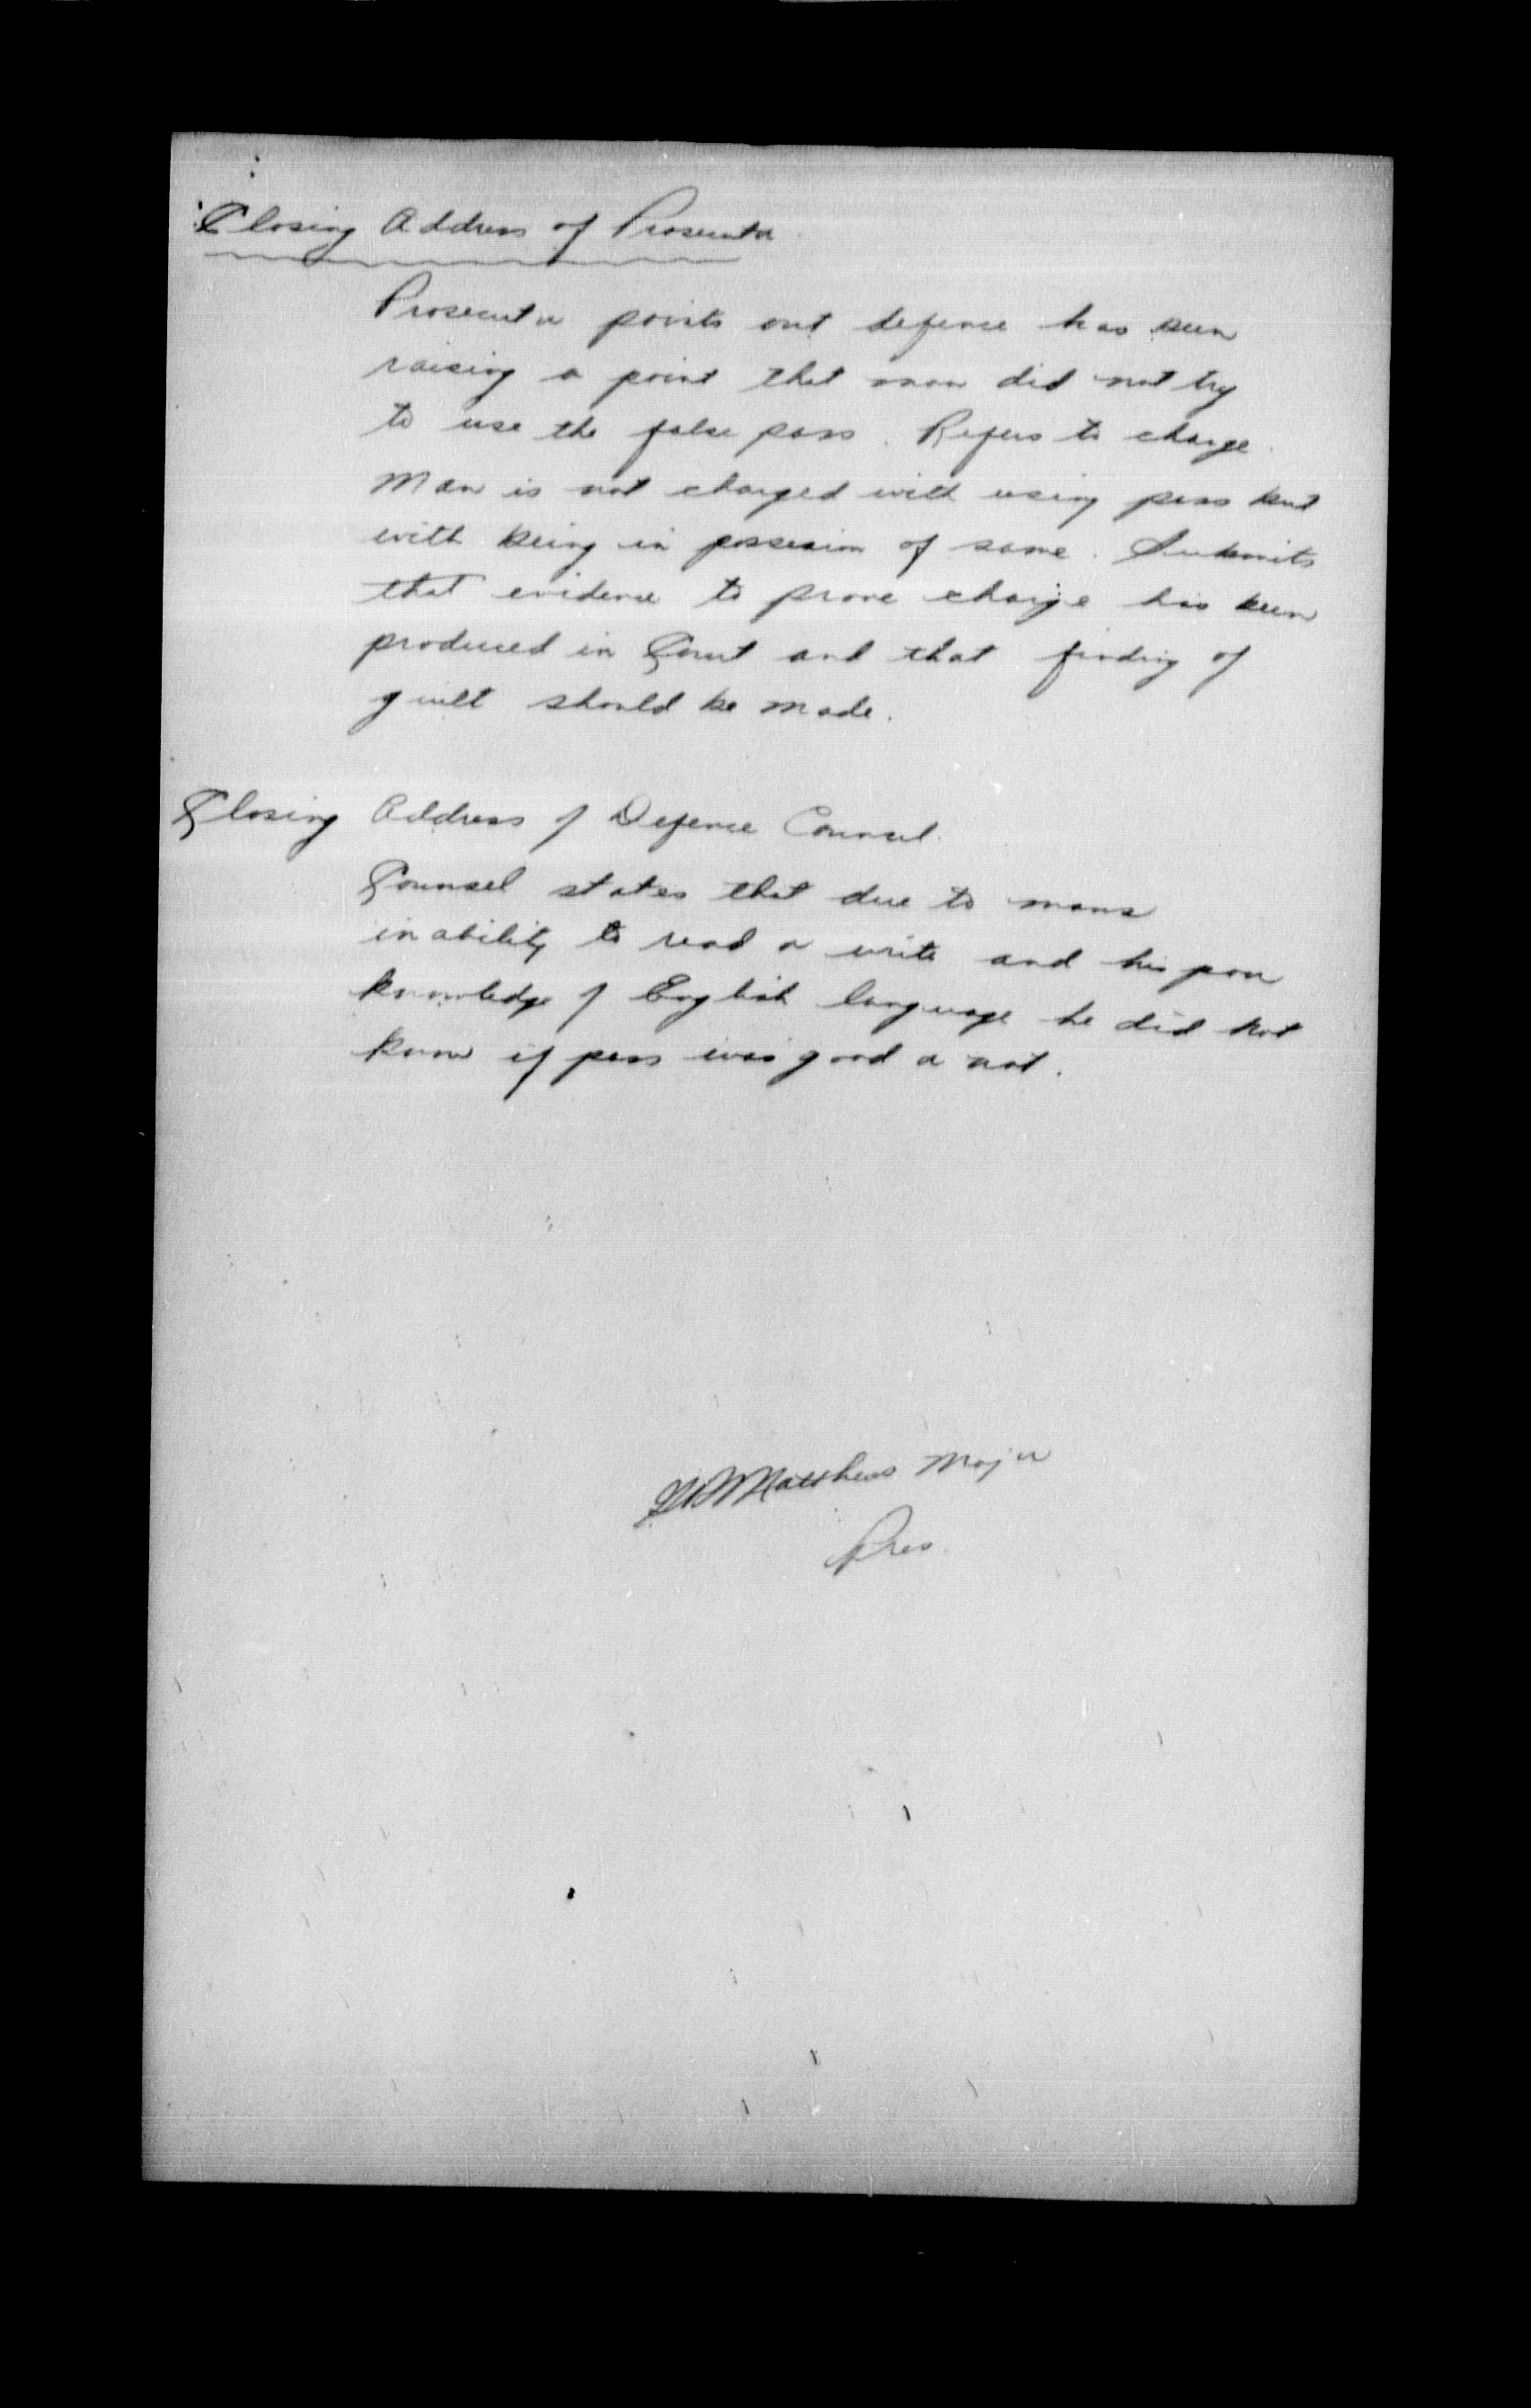 Closing Address of Prosecutor
Prosecutor points out defence has been
raising a point that man did not try
to use the false pass. Refers to charge.
Man is not charged with using pass but
with being in possesion of same. Submits
that evidence to prove charge has been
produced in Court and that finding of
guilt should be made.
Closing Address of Defence Counsel.
Counsel states that due to mans
inability to read or write and his poor
knowledge of English language he did not
know if pass was good or not.
Matthews Major
Pres.